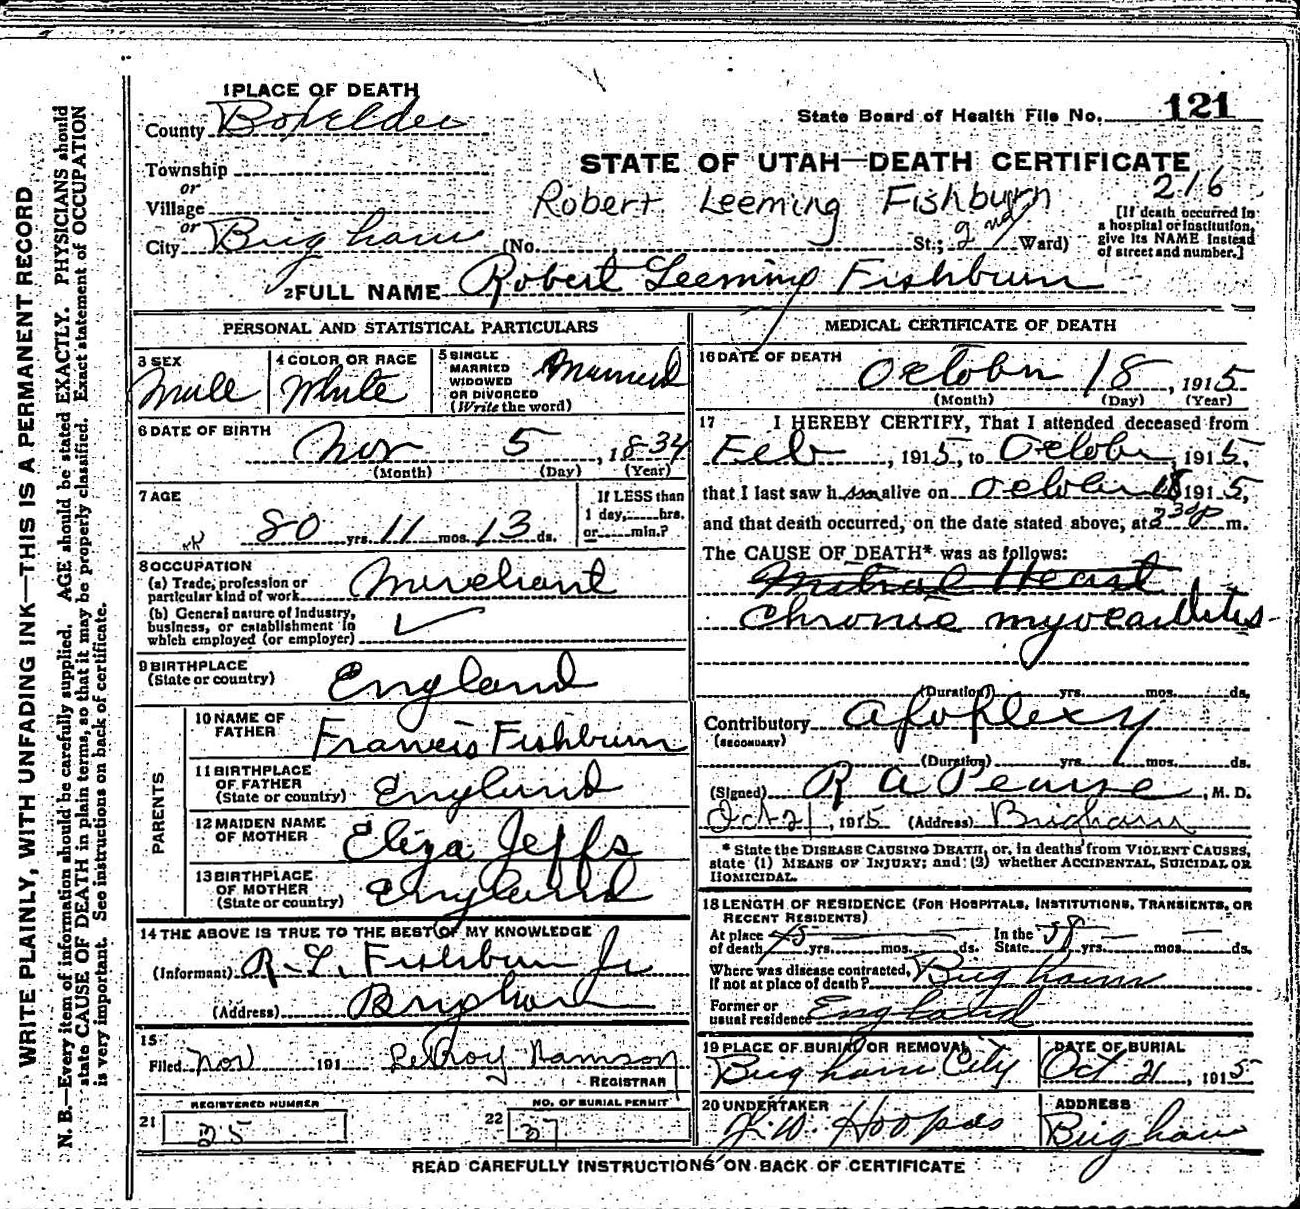 1 PLACE OF DEATH
County Boxelder
State Board of Health File No. 121
Township
or
Village
or
City Brigham
STATE OF UTAH—DEATH CERTIFICATE
Robert Leeming Fishburn
216
(No. St.; 2nd Ward)
[If death occurred in
a hospital or institution,
give its NAME instead
of street and number.]
2 FULL NAME Robert Leeming Fishburn
PERSONAL AND STATISTICAL PARTICULARS
3 SEX
Male
4 COLOR OR RACE
White
5 SINGLE
MARRIED
WIDOWED
OR DIVORCED
(Write the word)
Married
6 DATE OF BIRTH
Nov 5, 1834
(Month) (Day) (Year)
7 AGE
80 yrs. 11 mos. 13 ds.
If LESS than
1 day, hrs.
or min.?
8 OCCUPATION
(a) Trade, profession or
particular kind of work Merchant
(b) General nature of Industry,
business, or establishment in
which employed (or employer)
9 BIRTHPLACE
(State or country) England
PARENTS
10 NAME OF
FATHER Francis Fishburn
11 BIRTHPLACE
OF FATHER
(State or country) England
12 MAIDEN NAME
OF MOTHER Eliza Jeffs
13 BIRTHPLACE
OF MOTHER
(State or country) England
14 THE ABOVE IS TRUE TO THE BEST OF MY KNOWLEDGE
(Informant) R. L. Fishburn Jr
(Address) Brigham
15
Filed Nov 191 LeRoy
REGISTRAR
REGISTERED NUMBER
21 35
NO. OF BURIAL PERMIT
22 37
MEDICAL CERTIFICATE OF DEATH
16 DATE OF DEATH
October 18, 1915
(Month) (Day) (Year)
17 I HEREBY CERTIFY, That I attended deceased from
Feb, 1915, to October, 1915,
that I last saw him alive on October 18 1915,
and that death occurred, on the date stated above, at 230 p m.
The CAUSE OF DEATH* was as follows:
Mitral Heart
Chronic myocarditis
(Duration) yrs. mos. ds.
Contributory Apoplexy
(SECONDARY)
(Duration) yrs. mos. ds.
(Signed) R A Pearse, M. D.
Oct 21, 1915 (Address) Brigham
* State the DISEASE CAUSING DEATH, or, in deaths from VIOLENT CAUSES,
state (1) MEANS OF INJURY; and (2) whether ACCIDENTAL, SUICIDAL OR
HOMICIDAL.
18 LENGTH OF RESIDENCE (FOR HOSPITALS, INSTITUTIONS, TRANSIENTS, OR
RECENT RESIDENTS)
At place
of death 45 yrs. mos. ds. In the
State 58 yrs. mos. ds.
Where was disease contracted,
If not at place of death? Brigham
Former or
usual residence England
19 PLACE OF BURIAL OR REMOVAL
Brigham City
DATE OF BURIAL
Oct 21, 1915
20 UNDERTAKER
Hoopes
ADDRESS
Brigham
READ CAREFULLY INSTRUCTIONS ON BACK OF CERTIFICATE
WRITE PLAINLY, WITH UNFADING INK—THIS IS A PERMANENT RECORD
N. B.—Every item of information should be carefully supplied. AGE should be stated EXACTLY. PHYSICIANS should
state CAUSE OF DEATH in plain terms, so that it may be properly classified. Exact statement of OCCUPATION
is very important. See instructions on back of certificate.